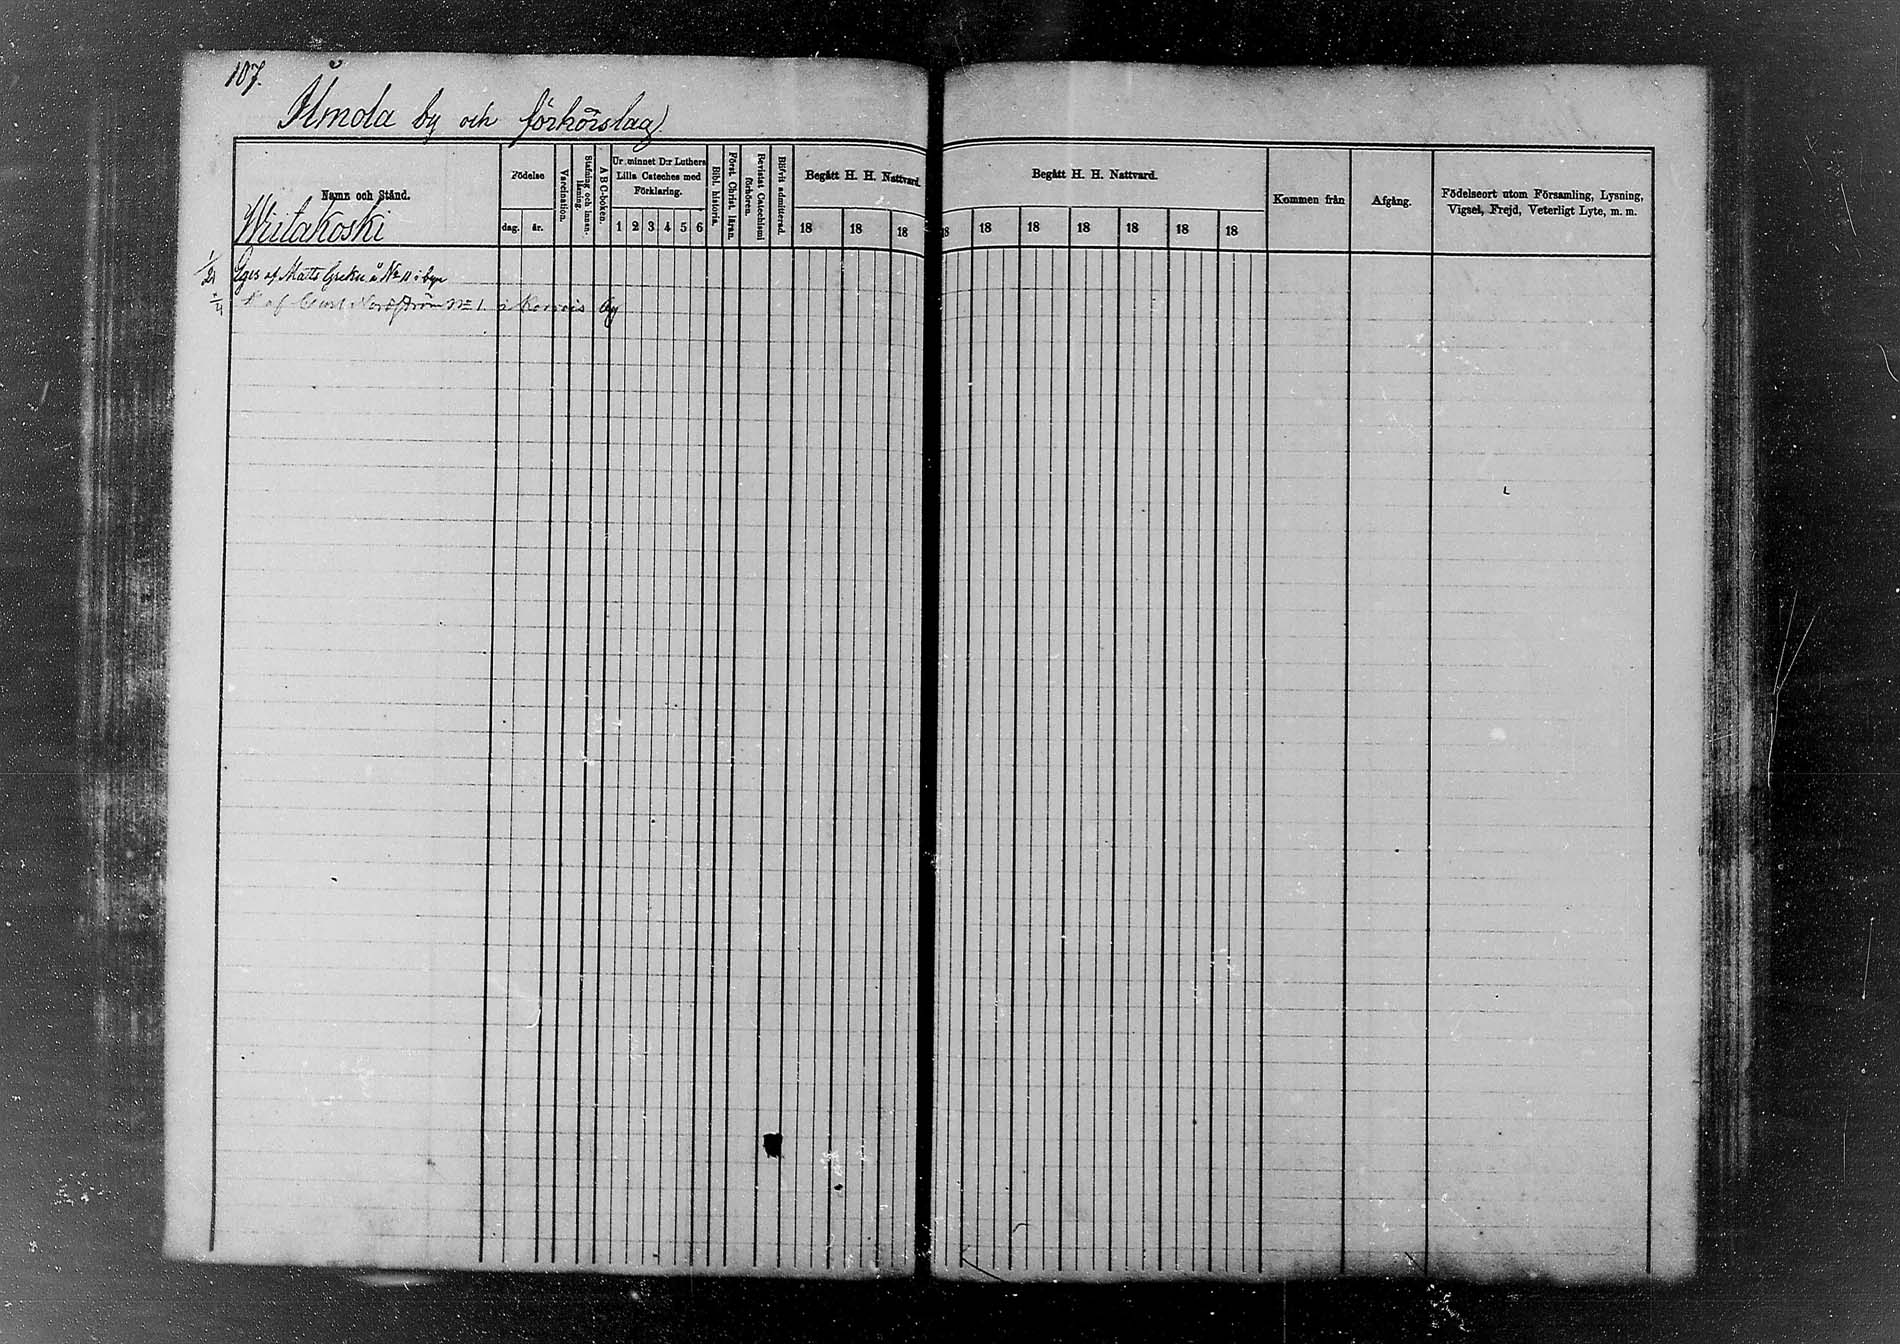 107.
Ilmola by och förhörslag.
Namn och Stånd.
Wiitakoski
Födelse
dag.
år.
Vaccination.
Stafning och innanläsning.
A B C-boken.
Ur minnet D:r Luthers Lilla Cateches med Förklaring.
1 2 3 4 5 6
Bibl. historia.
Först. Christ. läran.
Revistat Catechismi förhören.
Blifvit admitterad.
Begått H. H. Nattvard.
18 18 18
Begått H. H. Nattvard.
18 18 18 18 18 18 18
Kommen från
Afgång.
Födelseort utom Församling, Lysning,
Vigsel, Frejd, Veterligt Lyte, m. m.
1/2 Eges af Matts å No 11 i byn
1/4 af Nordström No 1. i by